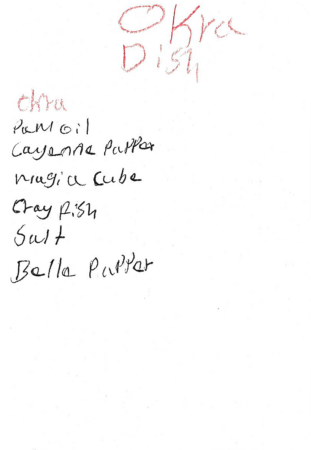 Okra
Dish
okra
Pam oil
Cayenne Papper
magia cube
Cray Fish
Salt
Bella Papper